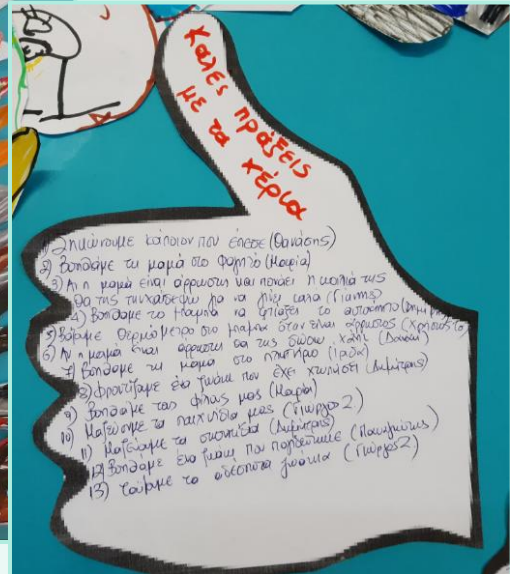 Καλές πράξεις
με τα χέρια
1) Σηκώνουμε κάποιον που έπεσε (Θανάσης)
2) Βοηθάμε τη μαμά στο φαγητό (Μαρία)
3) Αν η μαμά είναι άρρωστη και πονάει η κοιλιά της
θα της την χαϊδέψω για να γίνει καλά (Γιάννης)
4) Βοηθάμε το μπαμπά να φτιάξει το αυτοκίνητο
5) Βάζουμε θερμόμετρο στο μπαμπά όταν είναι άρρωστος
6) Αν η μαμά είναι άρρωστη θα της δώσω χάπι (Δανάη)
7) Βοηθάμε τη μαμά στο πλυντήριο
8) Φροντίζουμε ένα ζωάκι που έχει χτυπήσει (Δημήτρης)
9) Βοηθάμε τους φίλους μας (Μαρία)
10) Μαζεύουμε τα παιχνίδια μας (Γιώργος 2)
11) Μαζεύουμε τα σκουπίδια (Δημήτρης)
12) Βοηθάμε ένα ζωάκι που παγιδεύτηκε (Παναγιώτης)
13) Ταΐζουμε τα αδέσποτα ζωάκια (Γιώργος 2)